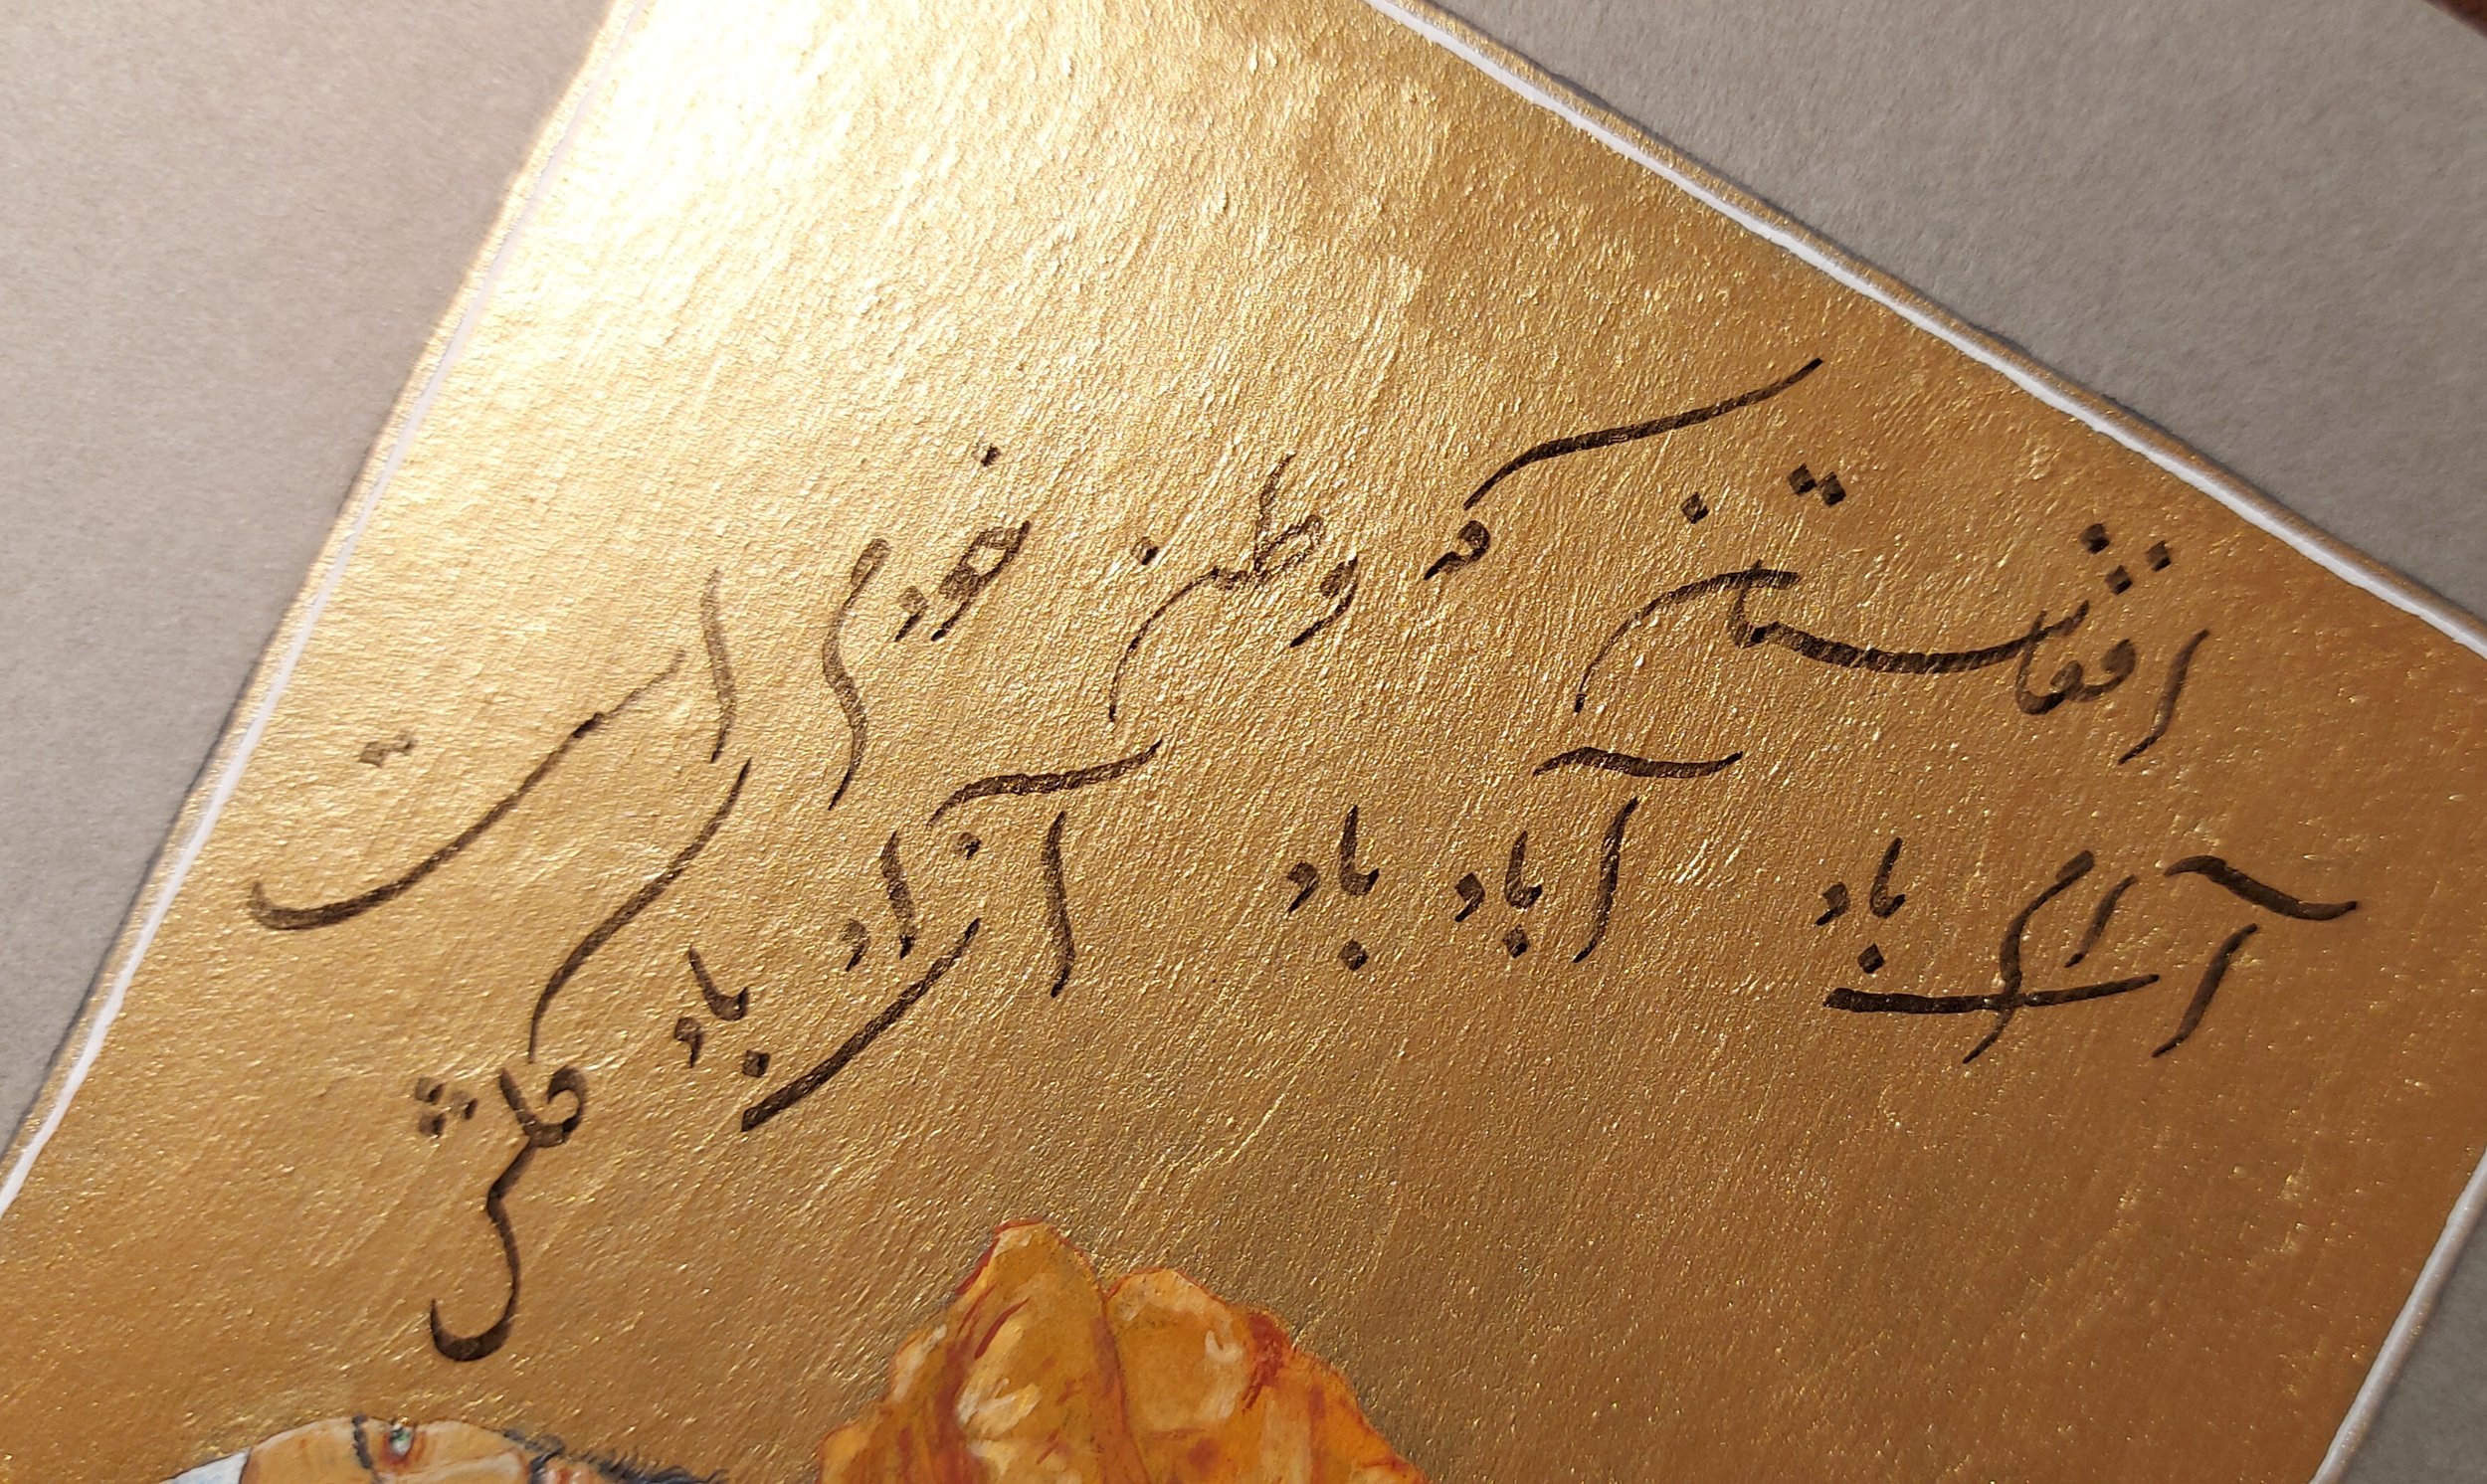 افغانستان که وطن خودم است
آرام باد آباد باد آزاد باد کاش